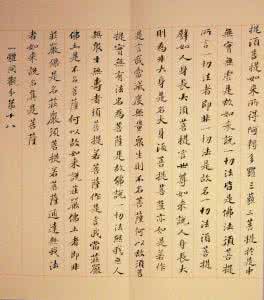 提須菩提如來所得阿耨多羅三藐三菩提於是中
無實無虛是故如來說一切法皆是佛法須菩提
所言一切法者即非一切法是故名一切法須菩提
譬如人身長大須菩提言世尊如來說人身長大
則為非大身是名大身須菩提菩薩亦如是若作
是言我當滅度無量眾生則不名菩薩何以故須菩
提實無有法名為菩薩是故佛說一切法無我無人
無眾生無壽者須菩提若菩薩作是言我當莊嚴
佛土是不名菩薩何以故如來說莊嚴佛土者即非
莊嚴是名莊嚴須菩提若菩薩通達無我法
者如來說名真是菩薩
一體同觀分第十八